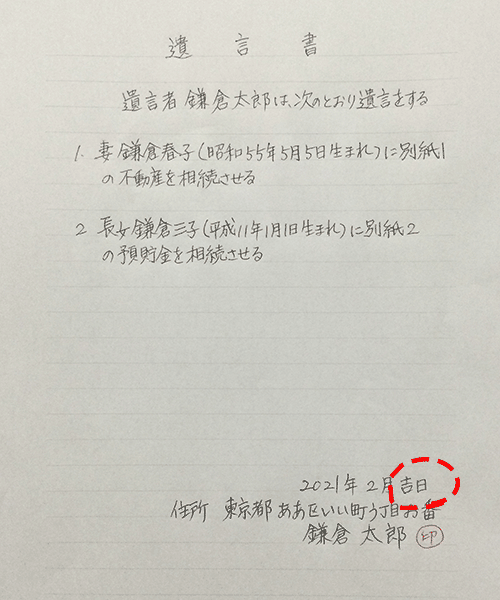 遺言書
遺言者 鎌倉太郎は、次のとおり遺言をする
1. 妻 鎌倉春子(昭和55年5月5日生まれ)に別紙1
の不動産を相続させる
2 長女 鎌倉三子(平成11年1月1日生まれ)に別紙2
の預貯金を相続させる
2021年 2月 吉日
住所 東京都 ああ区いい町う丁目お番
鎌倉 太郎 印